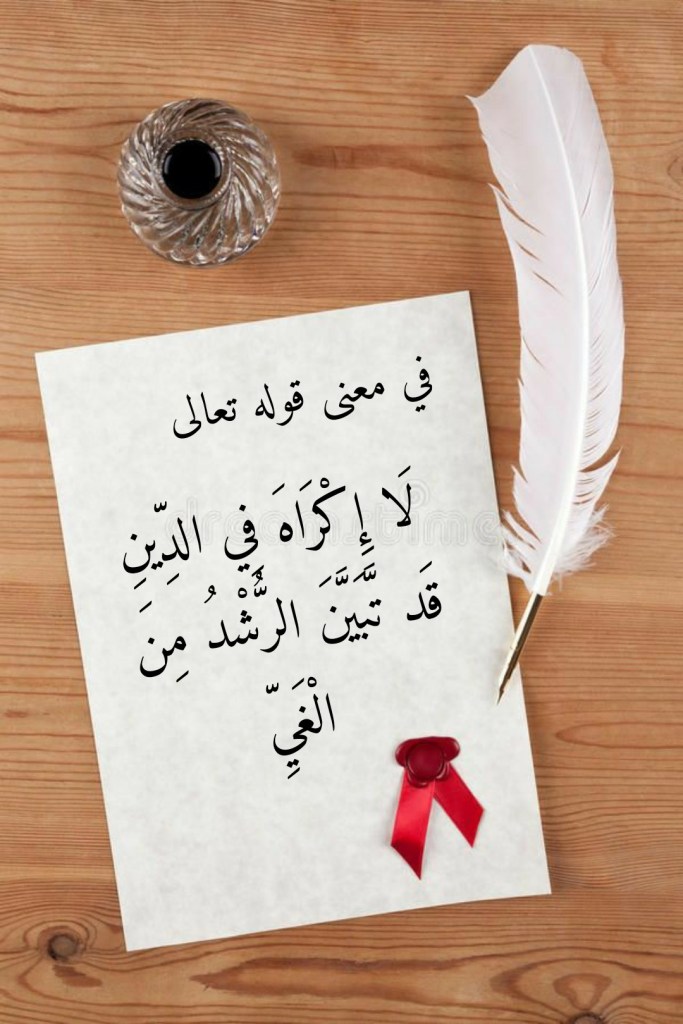 في معنى قوله تعالى
لَا إِكْرَاهَ فِي الدِّينِ
قَد تَّبَيَّنَ الرُّشْدُ مِنَ
الْغَيِّ